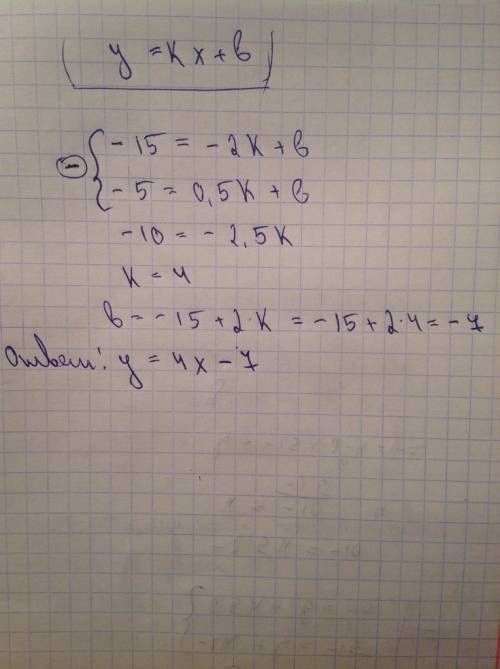 y = kx + в
- 15 = - 2k + в
- 5 = 0,5k + в
-10 = - 2,5k
k = 4
в = - 15 + 2·k = - 15 + 2·4 = - 7
Ответ: y = 4x - 7